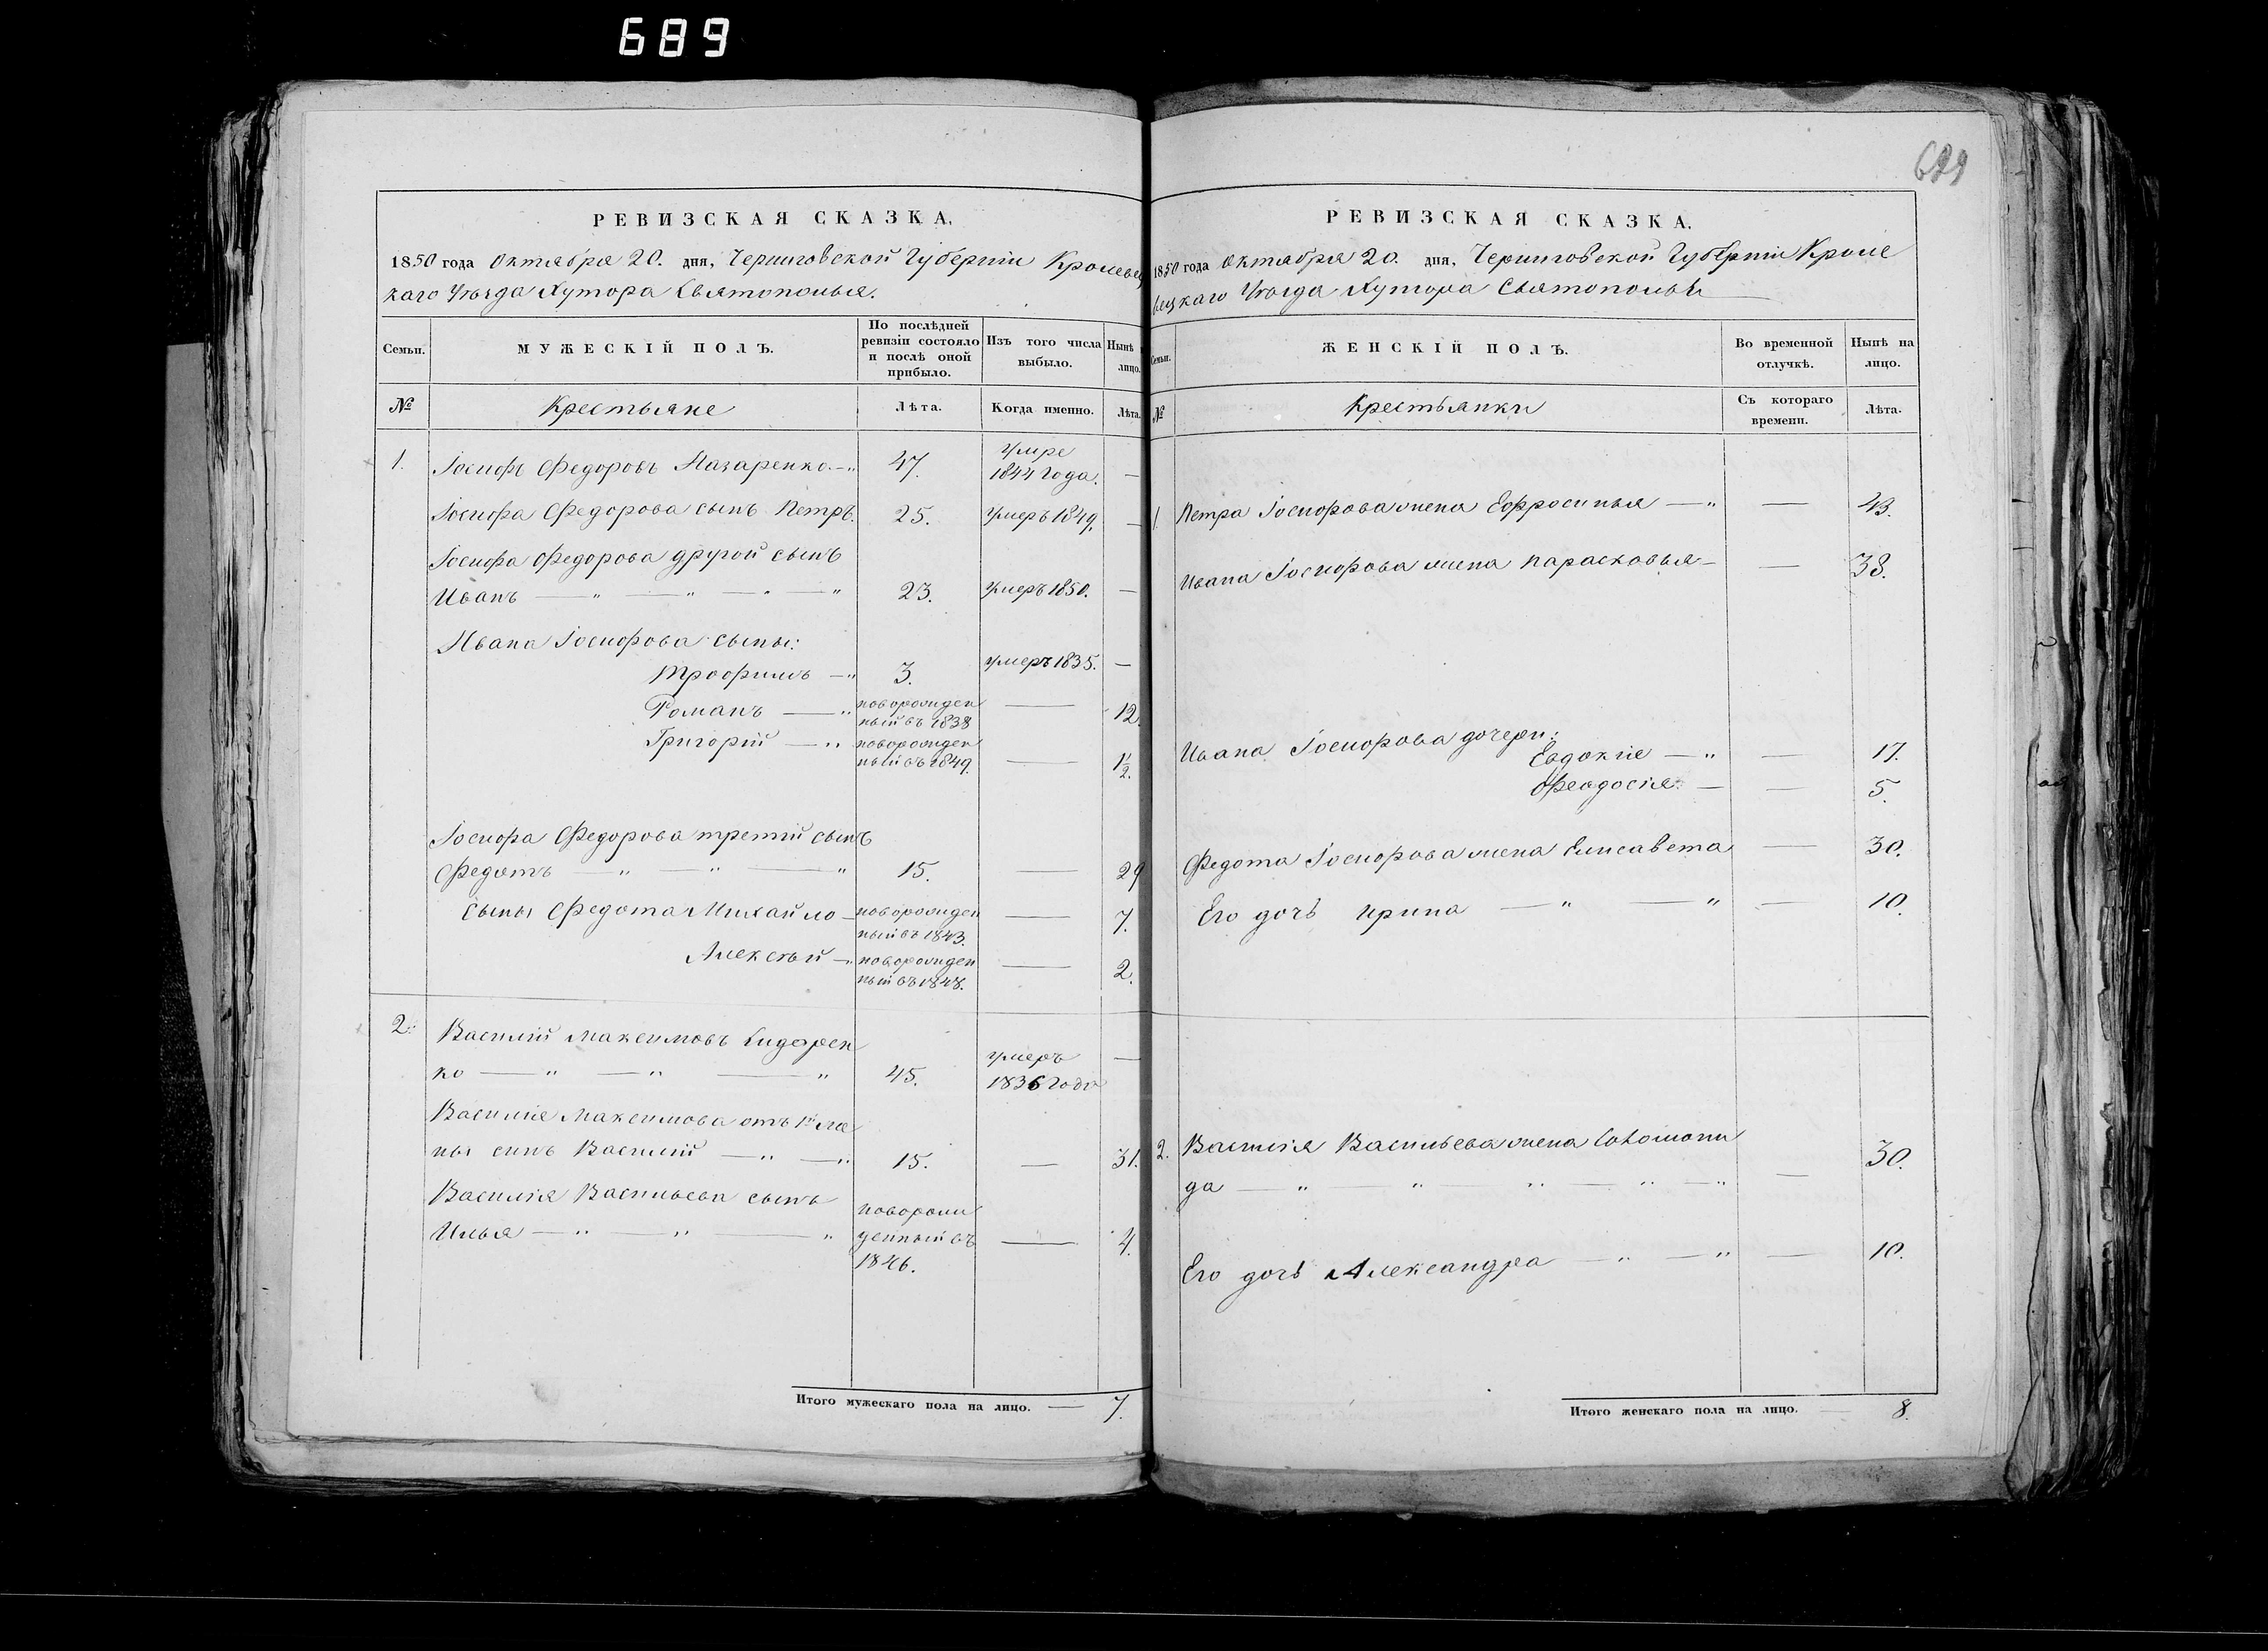 689
689
РЕВИЗСКАЯ СКАЗКА.
1850 года Октября 20. дня, Черниговской Губернiи Кролевец
каго Уѣзда Хутора Святополья.
Семьи.
МУЖЕСКIЙ ПОЛЪ.
По послѣдней
ревизiи состояло
и послѣ оной
прибыло.
Изъ того числа
выбыло.
Нынѣ
лицо.
№
Крестьяне
Лѣта.
Когда именно.
Лѣта.
1. Iосифъ Федоровъ Назаренко 47. Умре
1844 года. —
Iосифа Федорова сынъ Петръ. 25. Умеръ 1849. —
Iосифа Федорова другой сынъ
Иванъ — " — " — " — " 23. Умеръ 1850. —
Ивана Iосифова сыны:
Трофимъ — " 3. умеръ 1835. —
Романъ — " новорожден
ный въ 1838 — 12.
Григорiй — " новорожден
ный въ 1849. — 1½.
Iосифа Федорова третiй сынъ
Федотъ — " — " — " 15. — 29
Сыны Федота Михайло — новорожден
ный въ 1843. — 7.
Алексѣй — " новорожден
ный въ 1848. — 2.
2. Василiй Максимовъ Сидорен
ко — " — " — " 45. умеръ
1836 года —
Василiя Максимова отъ 1й же
ны сынъ Василiй — " — " 15. — 31.
Василiя Васильева сынъ
Илья — " — " — " новорож
денный въ
1846. — 4.
Итого мужескаго пола на лицо. — 7.
РЕВИЗСКАЯ СКАЗКА.
1850 года Октября 20. дня, Черниговской Губернiи Кроле
вецкаго Уѣзда Хутора Святополья
Семьи.
ЖЕНСКIЙ ПОЛЪ.
Во временной
отлучкѣ.
Нынѣ на
лицо.
№
Крестьянки
Съ котораго
времени.
Лѣта.
1. Петра Iосифова жена Ефросинья — " — 43.
Ивана Iосифова жена Парасковья — — 38.
Ивана Iосифова дочери:
Евдокiя — " — 17.
Феодосiя — — 5.
Федота Iосифова жена Елисавета — 30.
Его дочь Ирина — " — " — 10.
2. Василiя Васильева жена Соломони
да — " — " — " — " — " — 30.
Его дочь Александра — " — " — 10.
Итого женскаго пола на лицо. — 8.